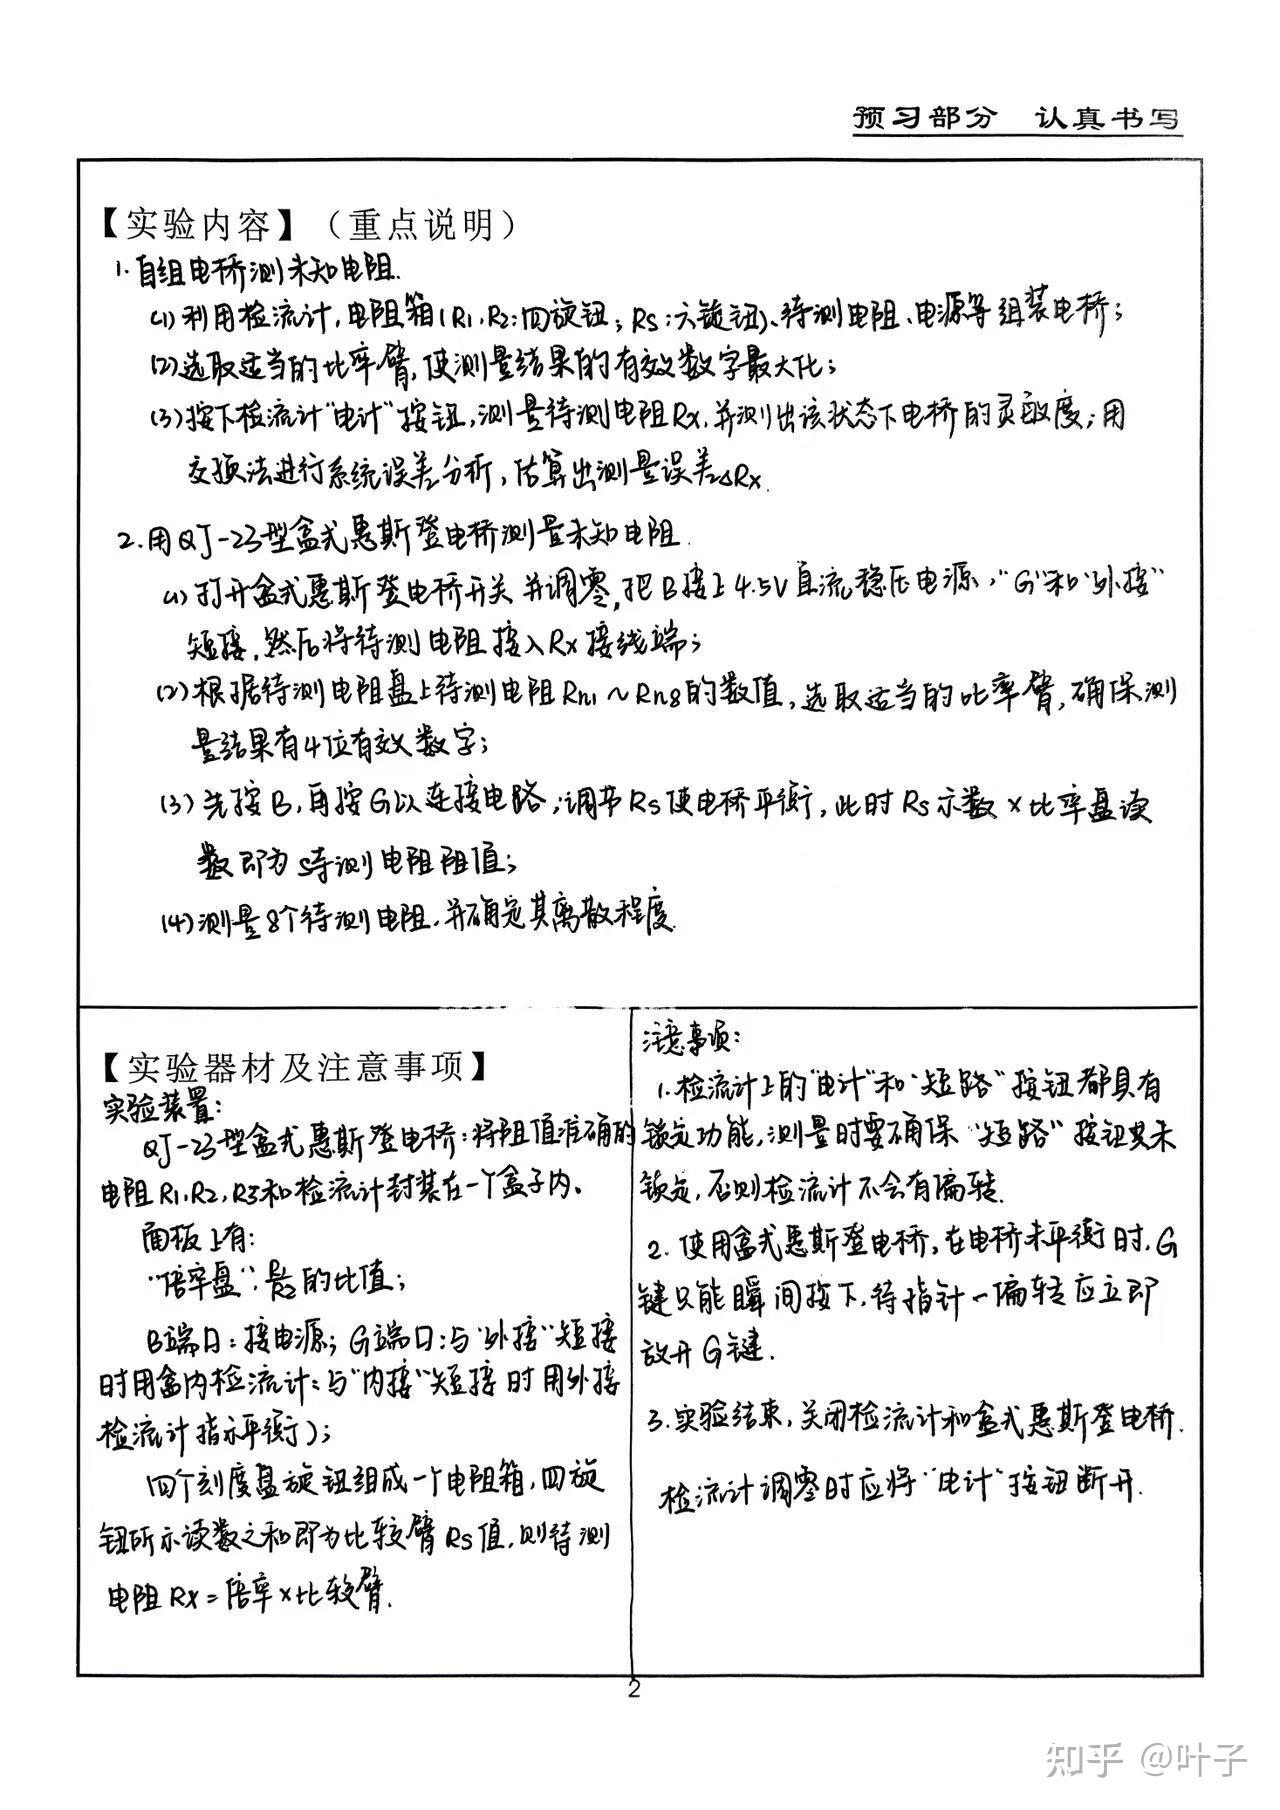 预习部分 认真书写
【实验内容】（重点说明）
1.自组电桥测未知电阻.
(1)利用检流计,电阻箱(R1,R2:四旋钮;Rs:六旋钮)、待测电阻、电源等组装电桥;
(2)选取适当的比率臂,使测量结果的有效数字最大化;
(3)按下检流计"电计"按钮,测量待测电阻Rx,并测出该状态下电桥的灵敏度;用
交换法进行系统误差分析,估算出测量误差△Rx.
2.用QJ-23型盒式惠斯登电桥测量未知电阻.
(1)打开盒式惠斯登电桥开关并调零,把B接上4.5V直流稳压电源,"G"和"外接"
短接,然后将待测电阻接入Rx接线端;
(2)根据待测电阻盘上待测电阻Rn1~Rn8的数值,选取适当的比率臂,确保测
量结果有4位有效数字;
(3)先按B,再按G以连接电路,调节Rs使电桥平衡,此时Rs示数×比率盘读
数即为待测电阻阻值;
(4)测量8个待测电阻,并确定其离散程度.
【实验器材及注意事项】
实验装置:
QJ-23型盒式惠斯登电桥:将阻值准确的
电阻R1,R2,R3和检流计封装在一个盒子内。
面板上有:
"倍率盘":的比值;
B端口:接电源;G端口:与"外接"短接
时用盒内检流计;与"内接"短接时用外接
检流计指示平衡);
四个刻度盘旋钮组成一个电阻箱,四旋
钮所示读数之和即为比较臂Rs值,则待测
电阻Rx=倍率×比较臂.
注意事项:
1.检流计上的"电计"和"短路"按钮都具有
锁定功能,测量时要确保"短路"按钮其未
锁定,否则检流计不会有偏转.
2.使用盒式惠斯登电桥,在电桥未平衡时,G
键只能瞬间按下,待指针一偏转应立即
放开G键.
3.实验结束,关闭检流计和盒式惠斯登电桥.
检流计调零时应将"电计"按钮断开.
2
知乎 @叶子